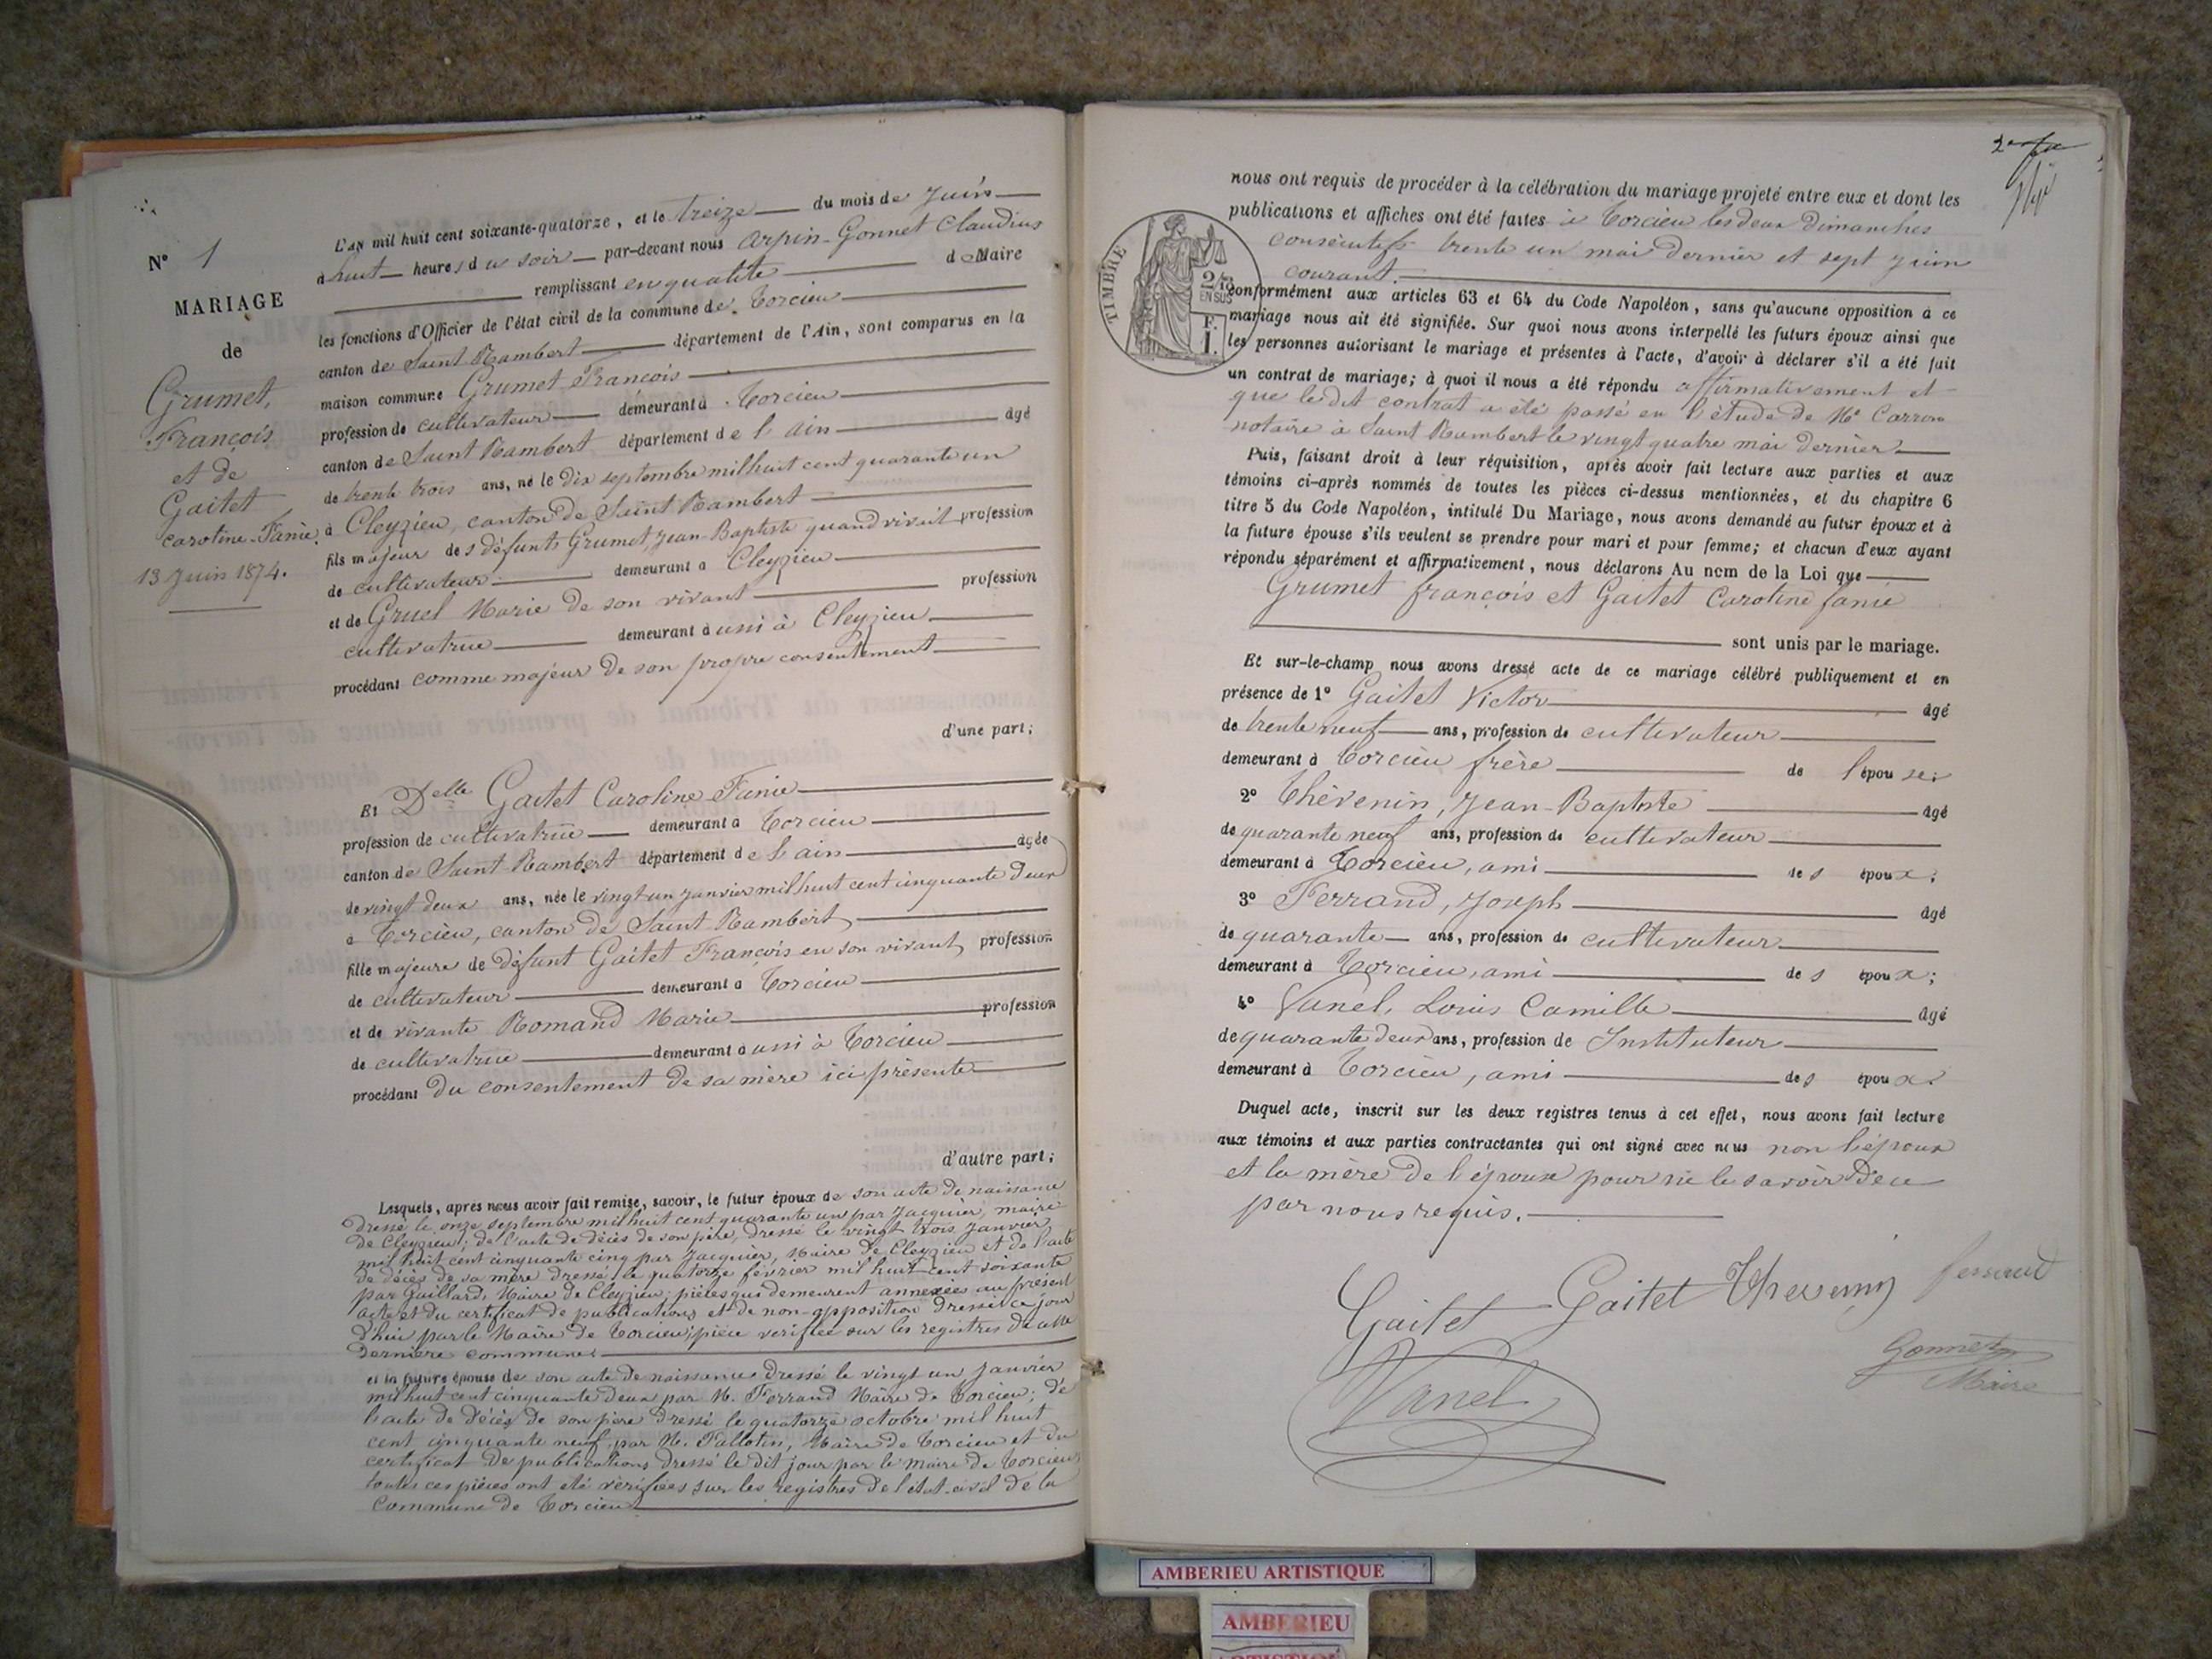 N° 1
MARIAGE
de
Grumet,
François
et de
Gaitet
Caroline-Fanie.
13 Juin 1874.
L'an mil huit cent soixante-quatorze, et le treize du mois de Juin
à huit heures du soir par-devant nous Arpin-Gonnet Claudius
remplissant en qualité de Maire
les fonctions d'Officier de l'état civil de la commune de Torcieu
canton de Saint Rambert département de l'Ain, sont comparus en la
maison commune Grumet François
profession de cultivateur demeurant à Torcieu
canton de Saint Rambert département de l'ain âgé
de trente trois ans, né le dix septembre mil huit cent quarante un
à Cleyzieu, canton de Saint Rambert
fils majeur des défunts Grumet Jean-Baptiste quand vivait profession
de cultivateur demeurant à Cleyzieu
et de Gruel Marie de son vivant profession
cultivatrice demeurant aussi à Cleyzieu
procédant comme majeur de son propre consentement
d'une part;
Et Delle Gaitet Caroline Fanie
profession de cultivatrice demeurant à Torcieu
canton de Saint-Rambert département de l'ain âgée
de vingt deux ans, née le vingt un janvier mil huit cent cinquante deux
à Torcieu, canton de Saint Rambert
fille majeure de défunt Gaitet François en son vivant profession
de cultivateur demeurant à Torcieu
et de vivante Romand Marie profession
de cultivatrice demeurant aussi à Torcieu
procédant du consentement de sa mère ici présente
d'autre part;
Lesquels, après nous avoir fait remise, savoir, le futur époux de son acte de naissance
dressé le onze septembre mil huit cent quarante un par Jacquier, maire
de Cleyzieu; de l'acte de décès de son père, dressé le vingt trois janvier
mil huit cent cinquante cinq par Jacquier, Maire de Cleyzieu et de l'acte
de décès de sa mère dressé le quatorze février mil huit cent soixante
par Gaillard, Maire de Cleyzieu; pièces qui demeurent annexées au présent
acte et du certificat de publications et de non-opposition dressé ce jour
d'hui par le Maire de Torcieu; pièce vérifiée sur les registres de cette
dernière commune.
et la future épouse de son acte de naissance dressé le vingt un Janvier
mil huit cent cinquante deux par M. Ferrand Maire de Torcieu; de
l'acte de décès de son père dressé le quatorze octobre mil huit
cent cinquante neuf par M. Pallotin, Maire de Torcieu et du
certificat de publications dressé le dit jour par le maire de Torcieu
toutes ces pièces ont été vérifiées sur les registres de l'état-civil de la
Commune de Torcieu
TIMBRE
2/10
EN SUS
F.
1.
nous ont requis de procéder à la célébration du mariage projeté entre eux et dont les
publications et affiches ont été faites à Torcieu les deux dimanches
consécutifs trente un mai dernier et sept juin
courant.
conformément aux articles 63 et 64 du Code Napoléon, sans qu'aucune opposition à ce
mariage nous ait été signifiée. Sur quoi nous avons interpellé les futurs époux ainsi que
les personnes autorisant le mariage et présentes à l'acte, d'avoir à déclarer s'il a été fait
un contrat de mariage; à quoi il nous a été répondu affirmativement et
que ledit contrat a été passé en l'étude de Me Carron
notaire à Saint Rambert le vingt quatre mai dernier.
Puis, faisant droit à leur réquisition, après avoir fait lecture aux parties et aux
témoins ci-après nommés de toutes les pièces ci-dessus mentionnées, et du chapitre 6
titre 5 du Code Napoléon, intitulé Du Mariage, nous avons demandé au futur époux et à
la future épouse s'ils veulent se prendre pour mari et pour femme; et chacun d'eux ayant
répondu séparément et affirmativement, nous déclarons Au nom de la Loi que
Grumet françois et Gaitet Caroline fanie
sont unis par le mariage.
Et sur-le-champ nous avons dressé acte de ce mariage célébré publiquement et en
présence de 1° Gaitet Victor âgé
de trente neuf ans, profession de cultivateur
demeurant à Torcieu frère de l'épouse;
2° Thévenin, Jean-Baptiste âgé
de quarante neuf ans, profession de cultivateur
demeurant à Torcieu, ami des époux;
3° Ferrand, Joseph âgé
de quarante ans, profession de cultivateur
demeurant à Torcieu, ami des époux;
4° Vanel, Louis Camille âgé
de quarante deux ans, profession de Instituteur
demeurant à Torcieu, ami des époux.
Duquel acte, inscrit sur les deux registres tenus à cet effet, nous avons fait lecture
aux témoins et aux parties contractantes qui ont signé avec nous non l'époux
et la mère de l'épouse pour ne le savoir de ce
par nous requis.
Gaitet Gaitet Thevenin ferrand
Vanel
Gonnet
Maire
AMBERIEU ARTISTIQUE
AMBERIEU
ARTISTIQUE